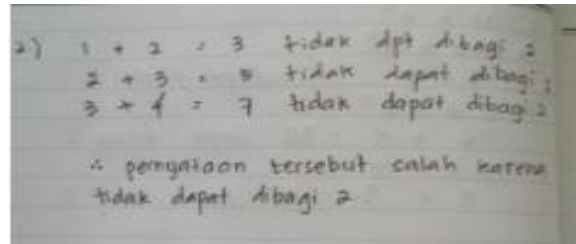 2) 1 + 2 = 3 tidak dpt dibagi 2
2 + 3 = 5 tidak dapat dibagi 2
3 + 4 = 7 tidak dapat dibagi 2
∴ pernyataan tersebut salah karena
tidak dapat dibagi 2